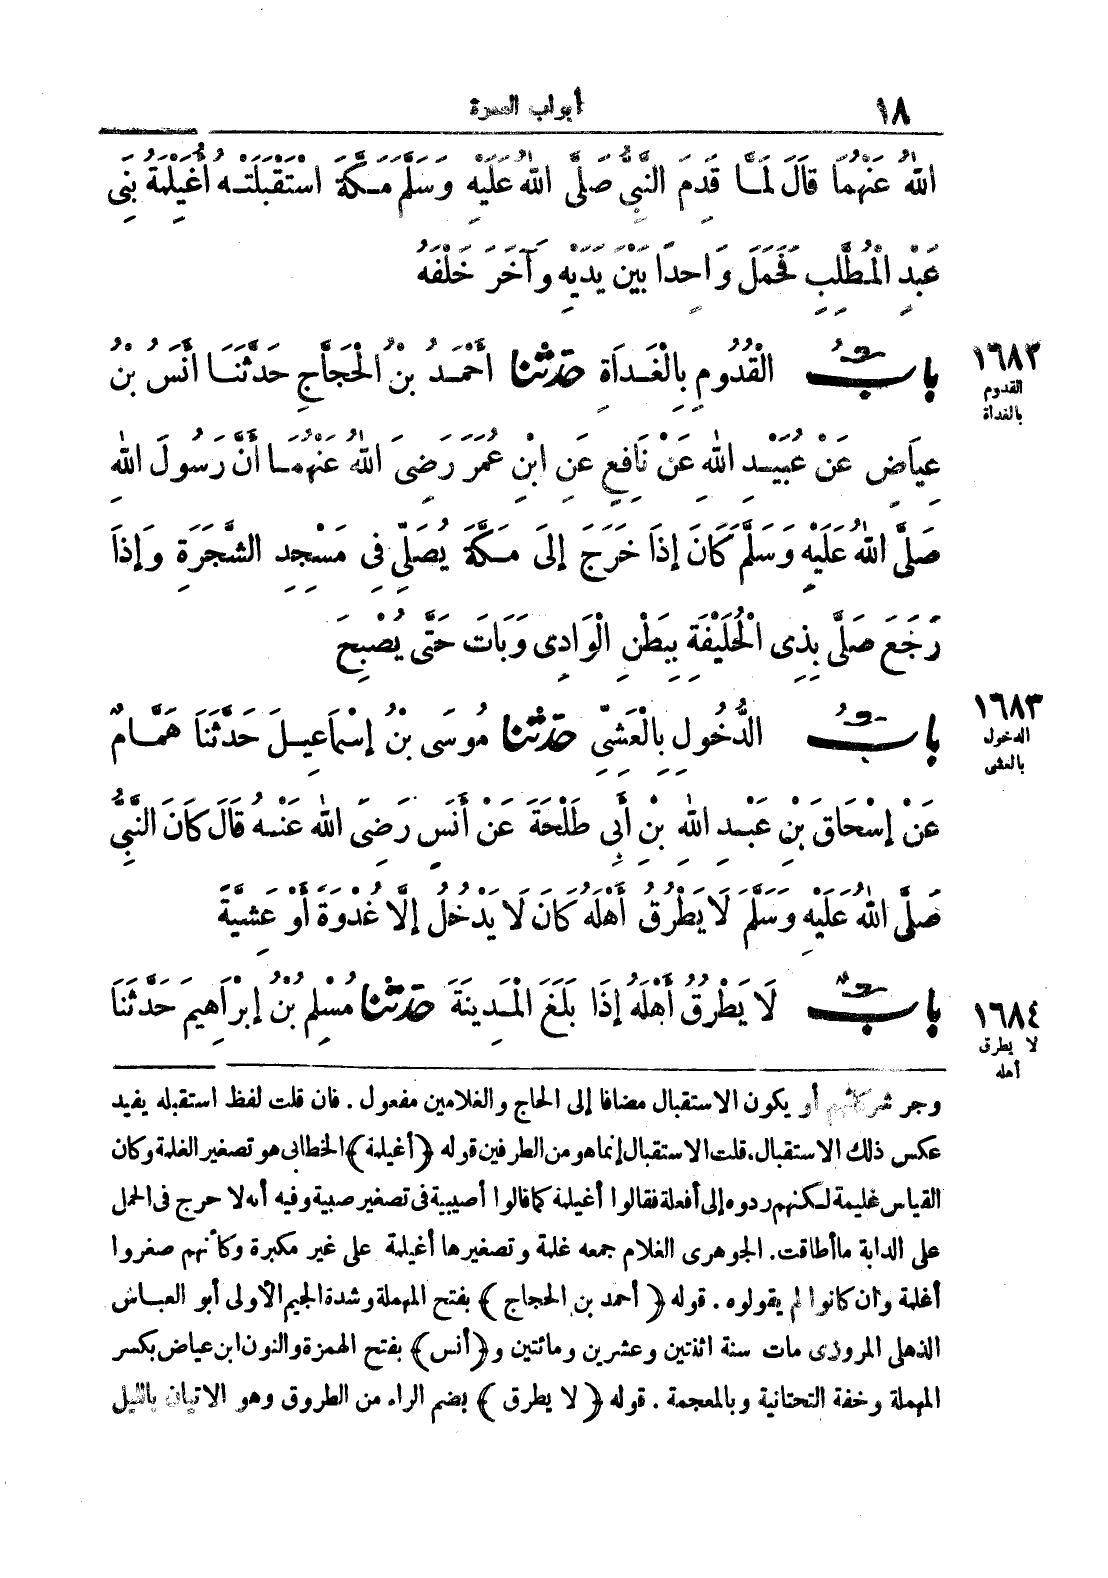 ١٨
أبواب العمرة
اللهُ عَنْهُمَا قَالَ لَمَّا قَدِمَ النَّبِىُّ صَلَّى اللهُ عَلَيْهِ وَسَلَّمَ مَكَّةَ اسْتَقْبَلَتْهُ أُغَيْلِمَةُ بَنِى
عَبْدِ الْمُطَّلِبِ فَحَمَلَ وَاحِدًا بَيْنَ يَدَيْهِ وَآخَرَ خَلْفَهُ
١٦٨٢
القدوم
بالغداة
بَابُ الْقُدُومِ بِالْغَدَاةِ حَدَّثَنَا أَحْمَدُ بْنُ الْحَجَّاجِ حَدَّثَنَا أَنَسُ بْنُ
عِيَاضٍ عَنْ عُبَيْدِ اللهِ عَنْ نَافِعٍ عَنِ ابْنِ عُمَرَ رَضِىَ اللهُ عَنْهُمَا أَنَّ رَسُولَ اللهِ
صَلَّى اللهُ عَلَيْهِ وَسَلَّمَ كَانَ إِذَا خَرَجَ إِلَى مَكَّةَ يُصَلِّى فِى مَسْجِدِ الشَّجَرَةِ وَإِذَا
رَجَعَ صَلَّى بِذِى الْحُلَيْفَةِ بِبَطْنِ الْوَادِى وَبَاتَ حَتَّى يُصْبِحَ
١٦٨٣
الدخول
بالعشى
بَابُ الدُّخُولِ بِالْعَشِىِّ حَدَّثَنَا مُوسَى بْنُ إِسْمَاعِيلَ حَدَّثَنَا هَمَّامٌ
عَنْ إِسْحَاقَ بْنِ عَبْدِ اللهِ بْنِ أَبِى طَلْحَةَ عَنْ أَنَسٍ رَضِىَ اللهُ عَنْهُ قَالَ كَانَ النَّبِىُّ
صَلَّى اللهُ عَلَيْهِ وَسَلَّمَ لَا يَطْرُقُ أَهْلَهُ كَانَ لَا يَدْخُلُ إِلَّا غُدْوَةً أَوْ عَشِيَّةً
١٦٨٤
لا يطرق
أهله
بَابٌ لَا يَطْرُقُ أَهْلَهُ إِذَا بَلَغَ الْمَدِينَةَ حَدَّثَنَا مُسْلِمُ بْنُ إِبْرَاهِيمَ حَدَّثَنَا
وجر شركائهم أو يكون الاستقبال مضافا إلى الحاج والغلامين مفعول . فان قلت لفظ استقبله يفيد
عكس ذلك الاستقبال. قلت الاستقبال إنما هو من الطرفين قوله ﴿أغيلمة﴾ الخطابى هو تصغير الغلمة وكان
القياس غليمة لكنهم ردوه إلى أفعلة فقالوا أغيلمة كما قالوا أصيبية فى تصغير صبية وفيه أنه لا حرج فى الحمل
على الدابة ما أطاقت. الجوهرى الغلام جمعه غلمة وتصغيرها أغيلمة على غير مكبرة وكأنهم صغروا
أغلمة وان كانوا لم يقولوه . قوله ﴿ أحمد بن الحجاج ﴾ بفتح المهملة وشدة الجيم الأولى أبو العباس
الذهلى المروزى مات سنة اثنتين وعشرين ومائتين و﴿أنس﴾ بفتح الهمزة والنون ابن عياض بكسر
المهملة وخفة التحتانية وبالمعجمة . قوله ﴿ لا يطرق ﴾ بضم الراء من الطروق وهو الاتيان بالليل